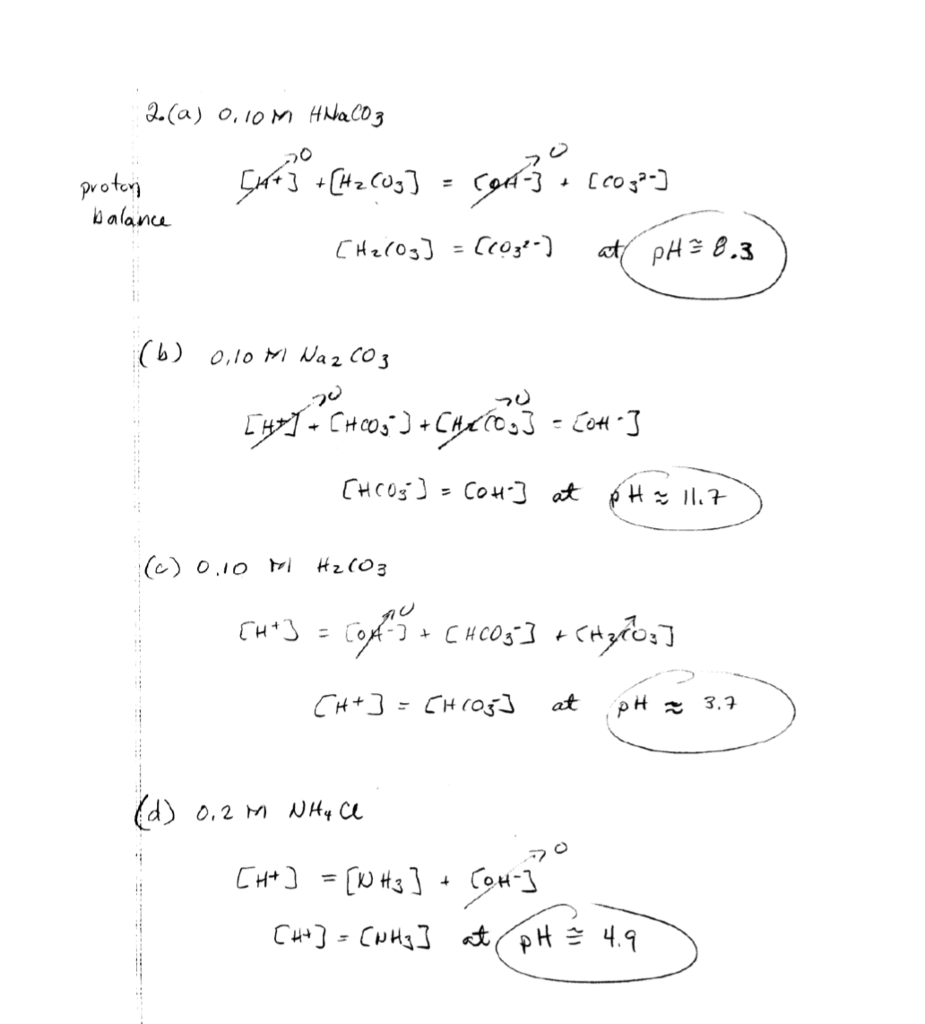 2.(a) 0.10 M HNaCO3
proton balance
[H+]→0 + [H2CO3] = [OH-]→0 + [CO3²-]
[H2CO3] = [CO3²-] at pH ≅ 8.3
(b) 0.10 M Na2CO3
[H+]→0 + [HCO3-] + [H2CO3]→0 = [OH-]
[HCO3-] = [OH-] at pH ≈ 11.7
(c) 0.10 M H2CO3
[H+] = [OH-]→0 + [HCO3-] + [H2CO3]→
[H+] = [HCO3-] at pH ≈ 3.7
(d) 0.2 M NH4Cl
[H+] = [NH3] + [OH-]→0
[H+] = [NH3] at pH ≅ 4.9